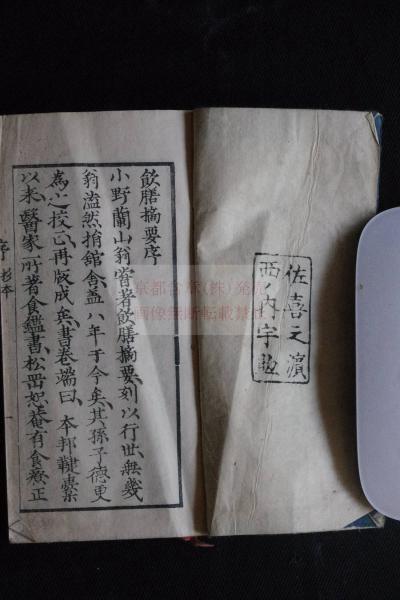 佐喜之濱
西ノ内宇
飲膳摘要序
小野蘭山翁嘗著飲膳摘要刻以行世無幾
翁溘然捐舘舎盖八年于今矣其孫子德更
為之挍正再版成矣書卷端曰本邦鞬櫜
以来醫家所著食鑑書松岡恕菴有食療正
序
杉本
京都古
(株)発売
画像無断転載禁止